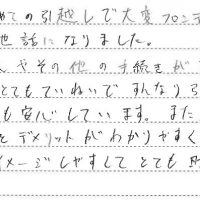 ての引越しで大変フロンテ
世話になりました。
やその他の手続きが
とてもていねいですんなり引
も安心しています。また
とデメリットがわかりやすく
イメージしやすくてとても助